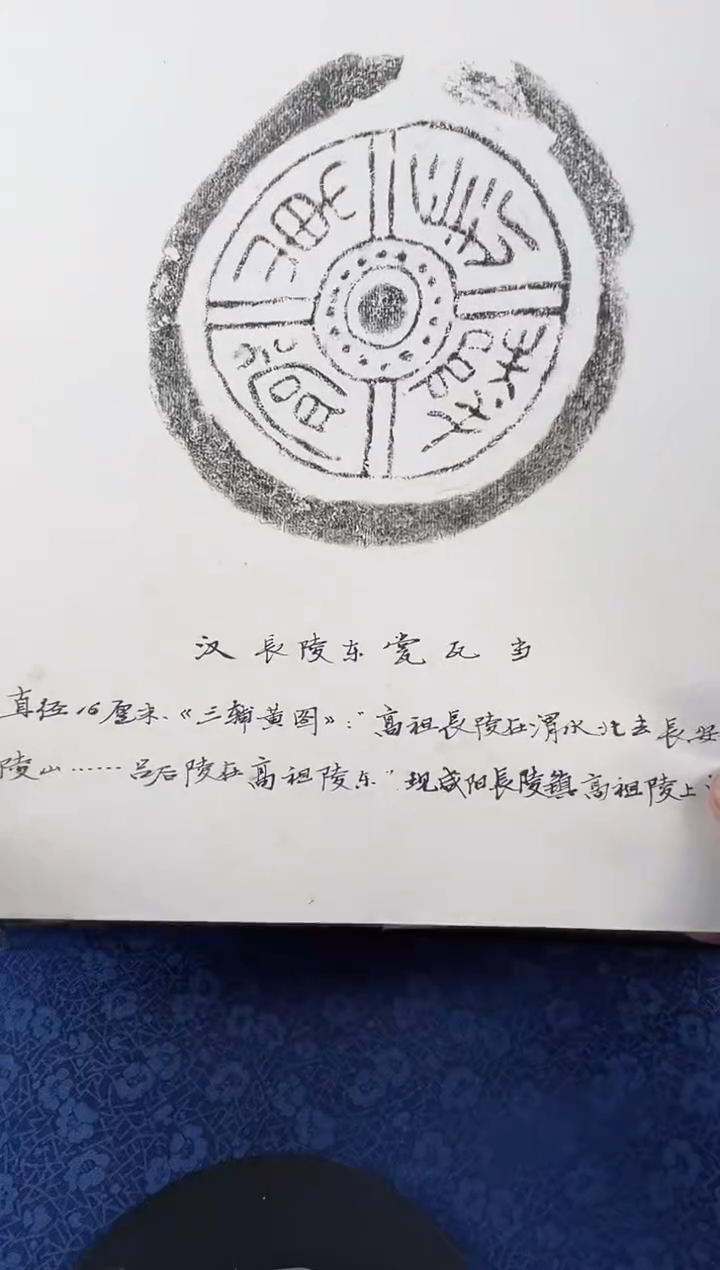 汉長陵东瓮瓦当
直径16厘米.《三辅黄图》:"高祖長陵在渭水北去長安
陵山……吕后陵在高祖陵东"现咸阳長陵鎮高祖陵上